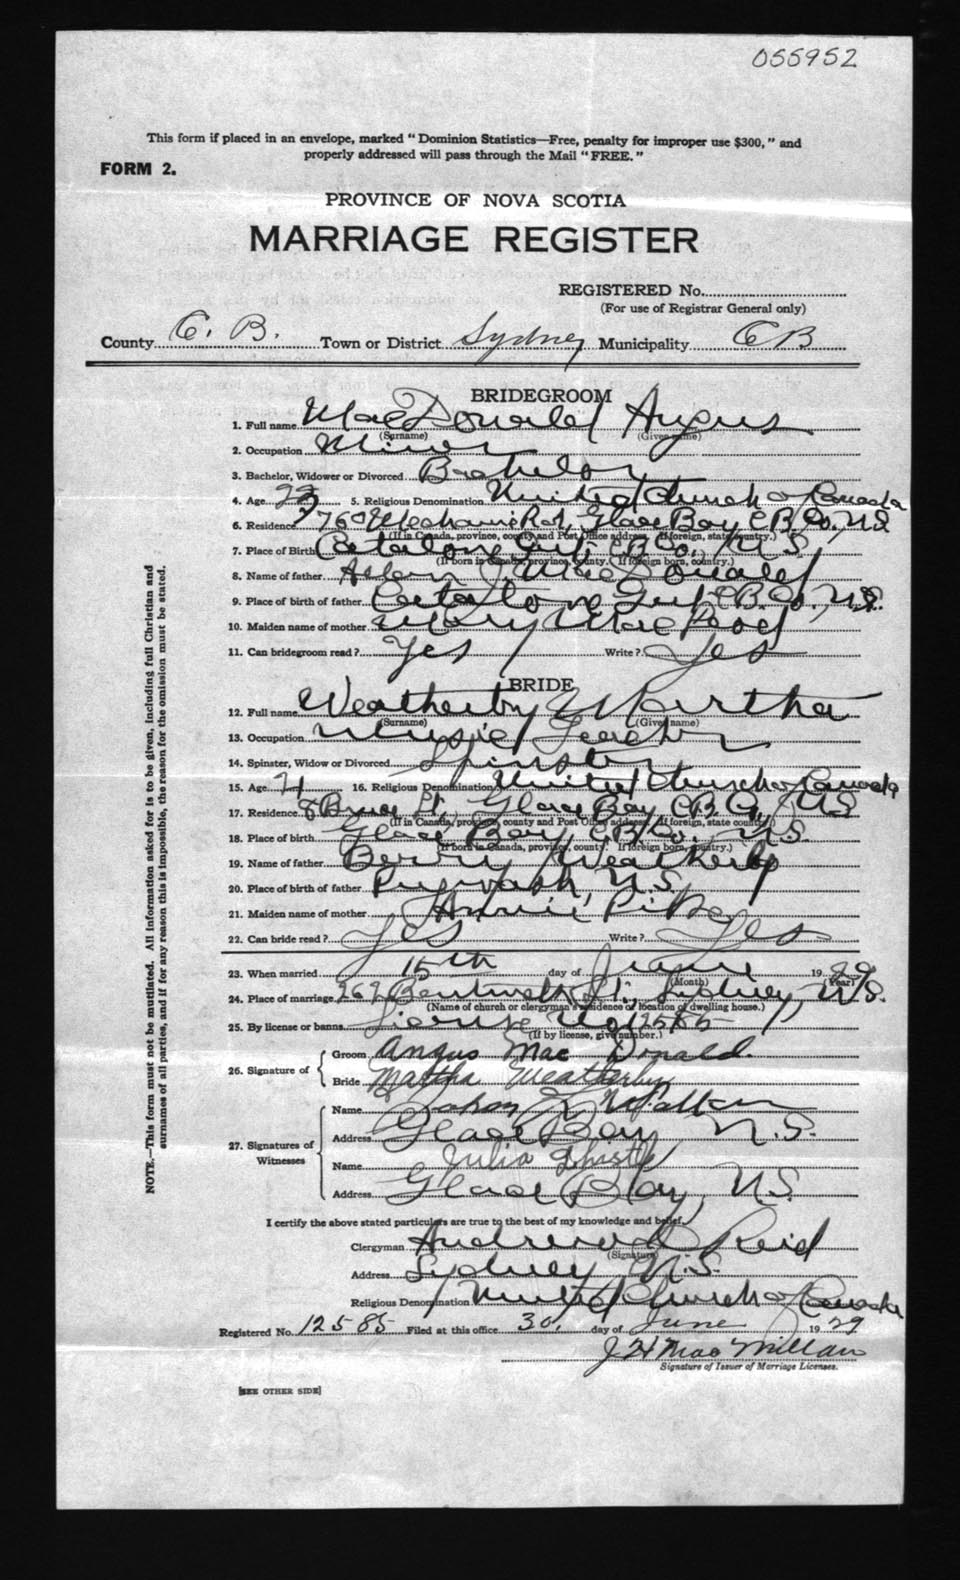 055952
This form if placed in an envelope, marked "Dominion Statistics—Free, penalty for improper use $300," and
properly addressed will pass through the Mail "FREE."
FORM 2.
PROVINCE OF NOVA SCOTIA
MARRIAGE REGISTER
REGISTERED No.
(For use of Registrar General only)
County C. B. Town or District Sydney Municipality C B
BRIDEGROOM
1. Full name MacDonald Angus
(Surname) (Given name)
2. Occupation Miner
3. Bachelor, Widower or Divorced Bachelor
4. Age 23 5. Religious Denomination United Church of Canada
6. Residence 76 Mechanic Rd, Glace Bay C.B. Co., N.S.
(If in Canada, province, county and Post Office address. If foreign, state country.)
7. Place of Birth Catalone Gut, C.B. Co., N.S.
(If born in Canada, province, county. If foreign born, country.)
8. Name of father Allan J. MacDonald
9. Place of birth of father Catalone Gut C.B. Co., N.S.
10. Maiden name of mother Mary MacLeod
11. Can bridegroom read? Yes Write? Yes
BRIDE
12. Full name Weatherby Martha
(Surname) (Given name)
13. Occupation Music Teacher
14. Spinster, Widow or Divorced Spinster
15. Age 21 16. Religious Denomination United Church of Canada
17. Residence 8 Bruce St., Glace Bay C.B. Co., N.S.
(If in Canada, province, county and Post Office address. If foreign, state country)
18. Place of birth Glace Bay, C.B. Co., N.S.
(If born in Canada, province, county. If foreign born, country.)
19. Name of father Berry Weatherby
20. Place of birth of father Pugwash, N.S.
21. Maiden name of mother Annie Pike
22. Can bride read? Yes Write? Yes
23. When married 15th day of June 1929
(Month) (Year)
24. Place of marriage 267 Bentinck St., Sydney, N.S.
(Name of church or clergyman's residence or location of dwelling house.)
25. By license or banns License No. 12585
(If by license, give number.)
26. Signature of
Groom Angus Mac Donald.
Bride Martha Weatherby
27. Signatures of Witnesses
Name
Address Glace Bay N.S.
Name Julia
Address Glace Bay, N.S.
I certify the above stated particulars are true to the best of my knowledge and belief,
Clergyman Andrew D. Reid
(Signature)
Address Sydney N.S.
Religious Denomination United Church of Canada
Registered No. 12585 Filed at this office 30. day of June 1929
J H MacMillan
Signature of Issuer of Marriage Licenses.
[SEE OTHER SIDE]
NOTE.—This form must not be mutilated. All information asked for is to be given, including full Christian and
surnames of all parties, and if for any reason this is impossible, the reason for the omission must be stated.